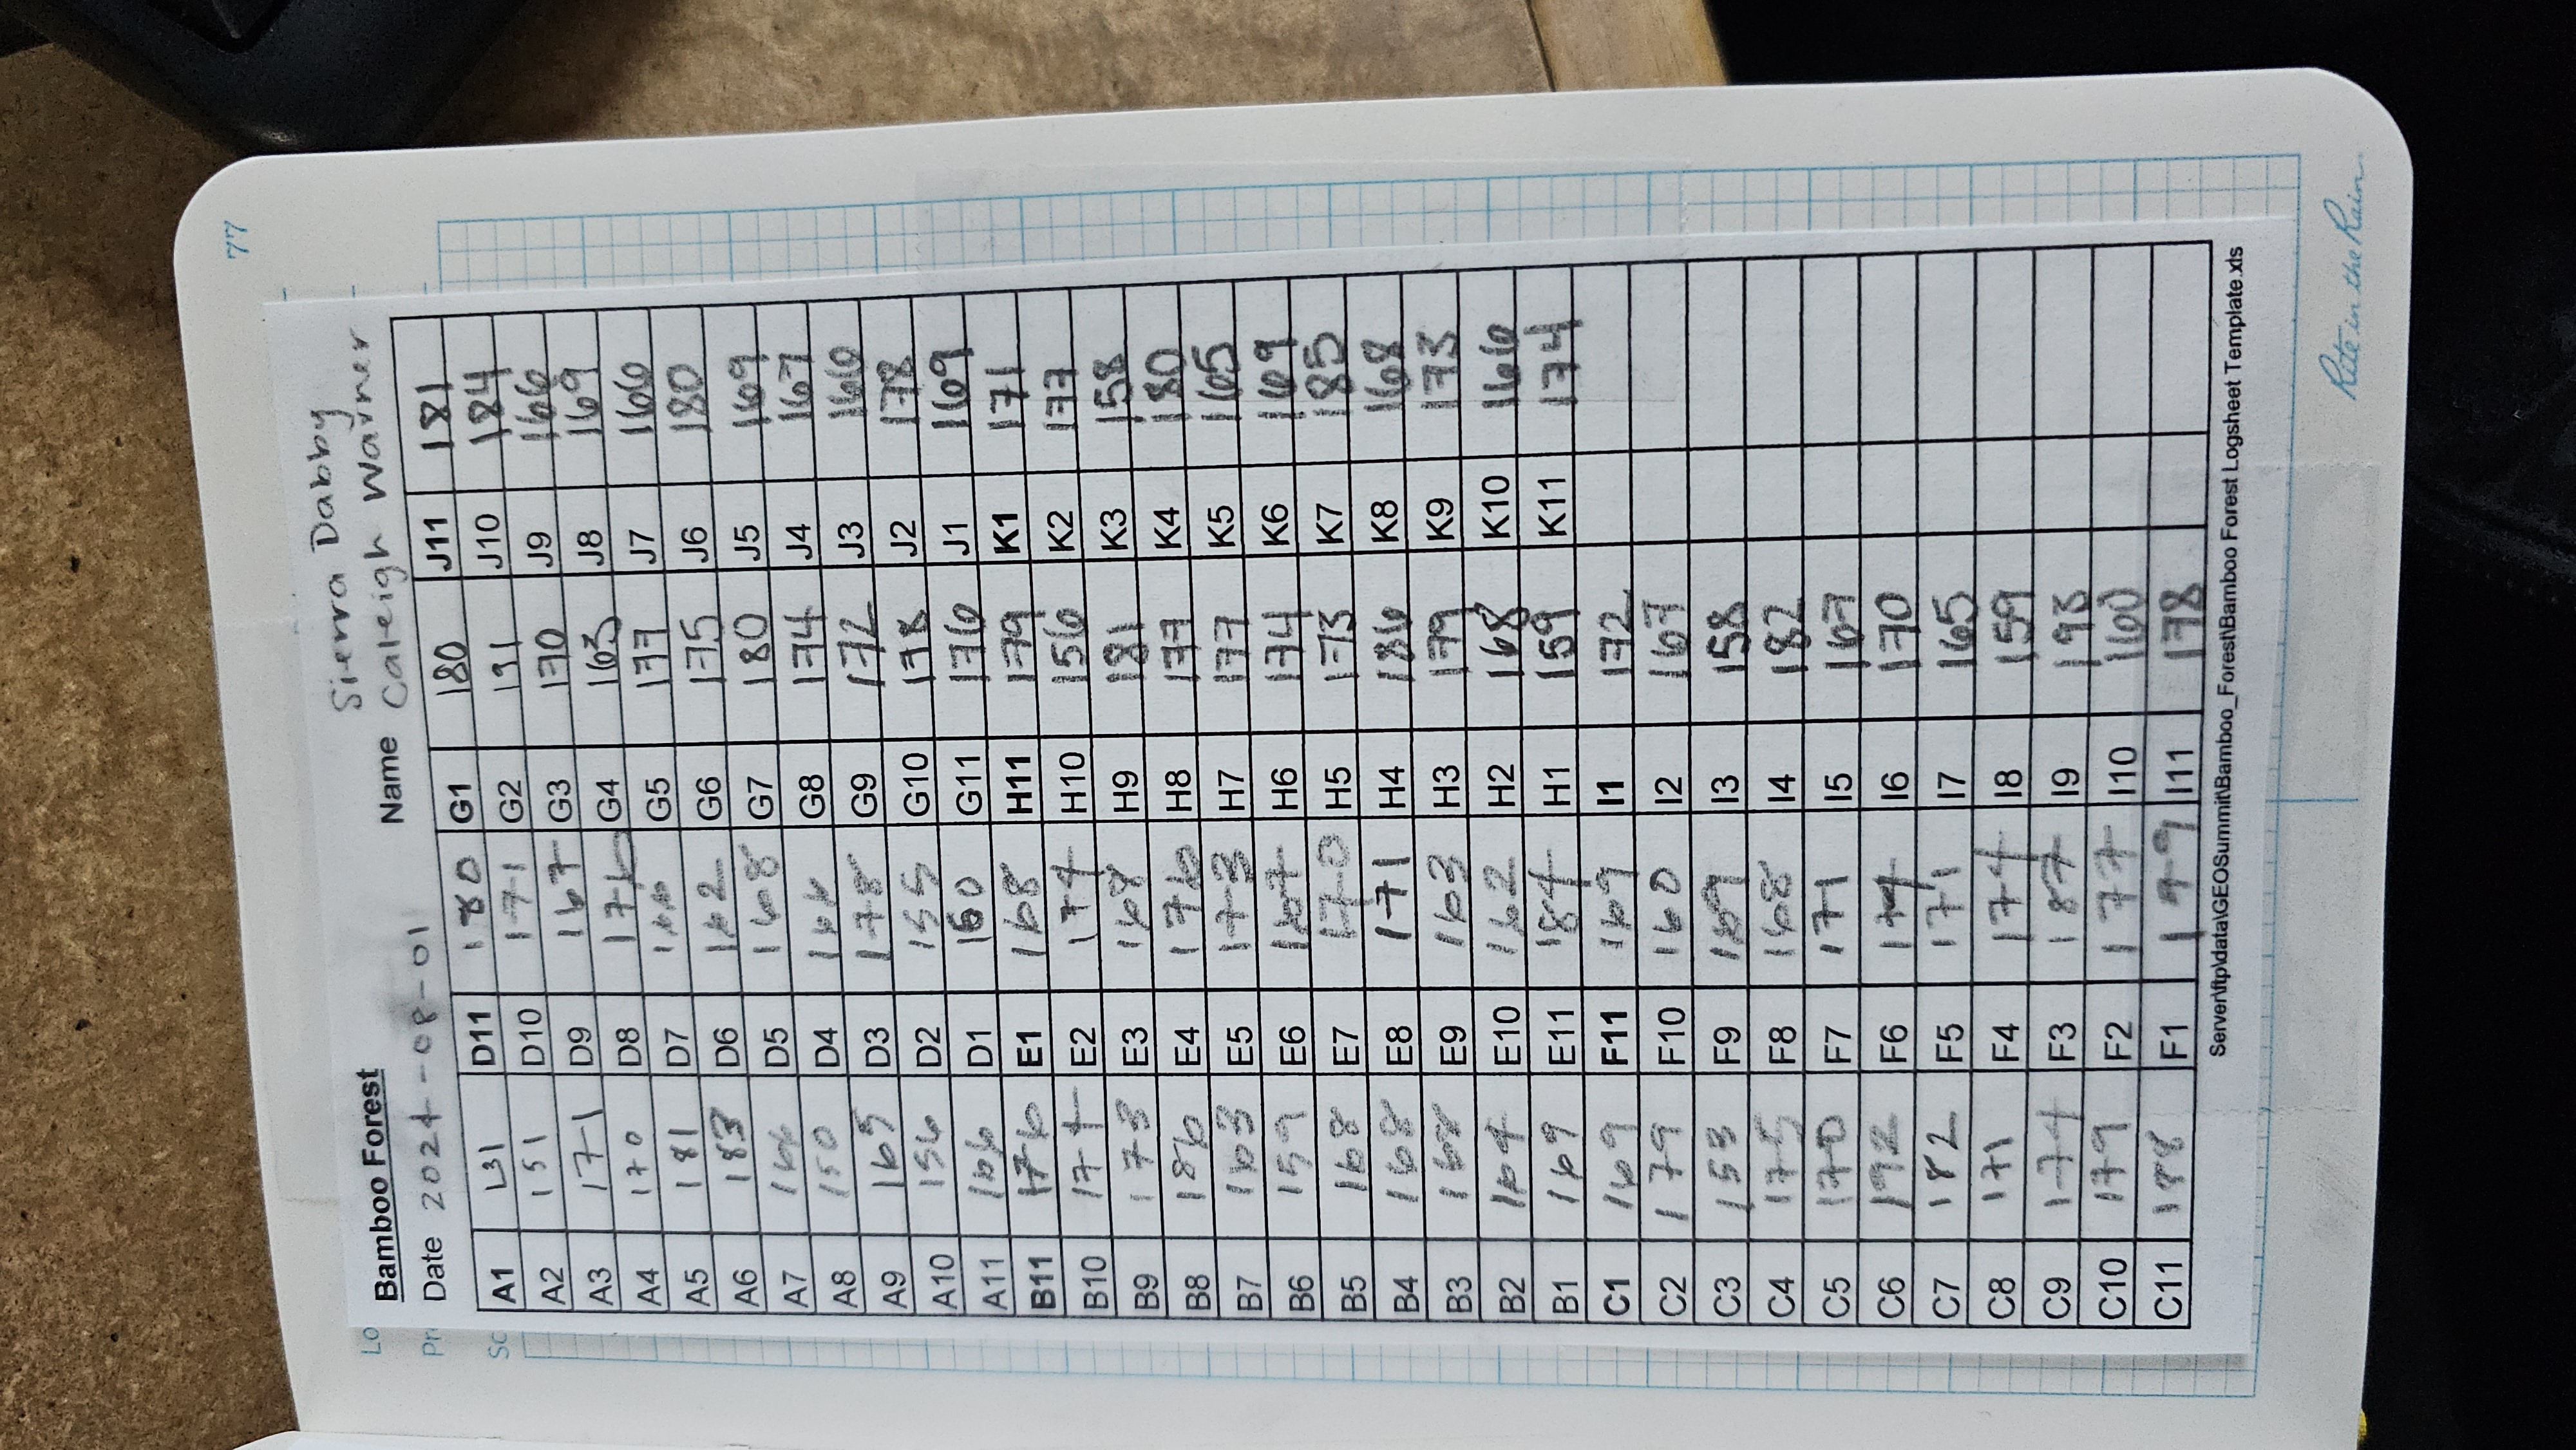 77
Bamboo Forest
Sierra Dabby
Date 2024-08-01 Name Caleigh Warner
A1 131 D11 180 G1 180 J11 181
A2 151 D10 171 G2 191 J10 184
A3 171 D9 167 G3 170 J9 166
A4 170 D8 G4 163 J8 169
A5 181 D7 166 G5 177 J7 166
A6 183 D6 162 G6 175 J6 180
A7 166 D5 168 G7 180 J5 169
A8 150 D4 166 G8 174 J4 167
A9 165 D3 178 G9 172 J3 166
A10 156 D2 155 G10 178 J2 178
A11 166 D1 160 G11 176 J1 169
B11 176 E1 168 H11 179 K1 171
B10 174 E2 174 H10 156 K2 177
B9 173 E3 168 H9 181 K3 158
B8 186 E4 176 H8 177 K4 180
B7 163 E5 173 H7 177 K5 165
B6 159 E6 167 H6 174 K6 169
B5 168 E7 170 H5 173 K7 185
B4 168 E8 171 H4 186 K8 168
B3 168 E9 163 H3 179 K9 173
B2 164 E10 162 H2 168 K10 166
B1 169 E11 184 H1 159 K11 174
C1 169 F11 169 I1 172
C2 179 F10 160 I2 167
C3 153 F9 169 I3 158
C4 175 F8 168 I4 182
C5 170 F7 171 I5 167
C6 192 F6 I6 170
C7 182 F5 171 I7 165
C8 171 F4 174 I8 159
C9 174 F3 187 I9
C10 179 F2 177 I10 160
C11 188 F1 I11 178
Server\ftp\data\GEOSummit\Bamboo_Forest\Bamboo Forest Logsheet Template.xls
Rite in the Rain